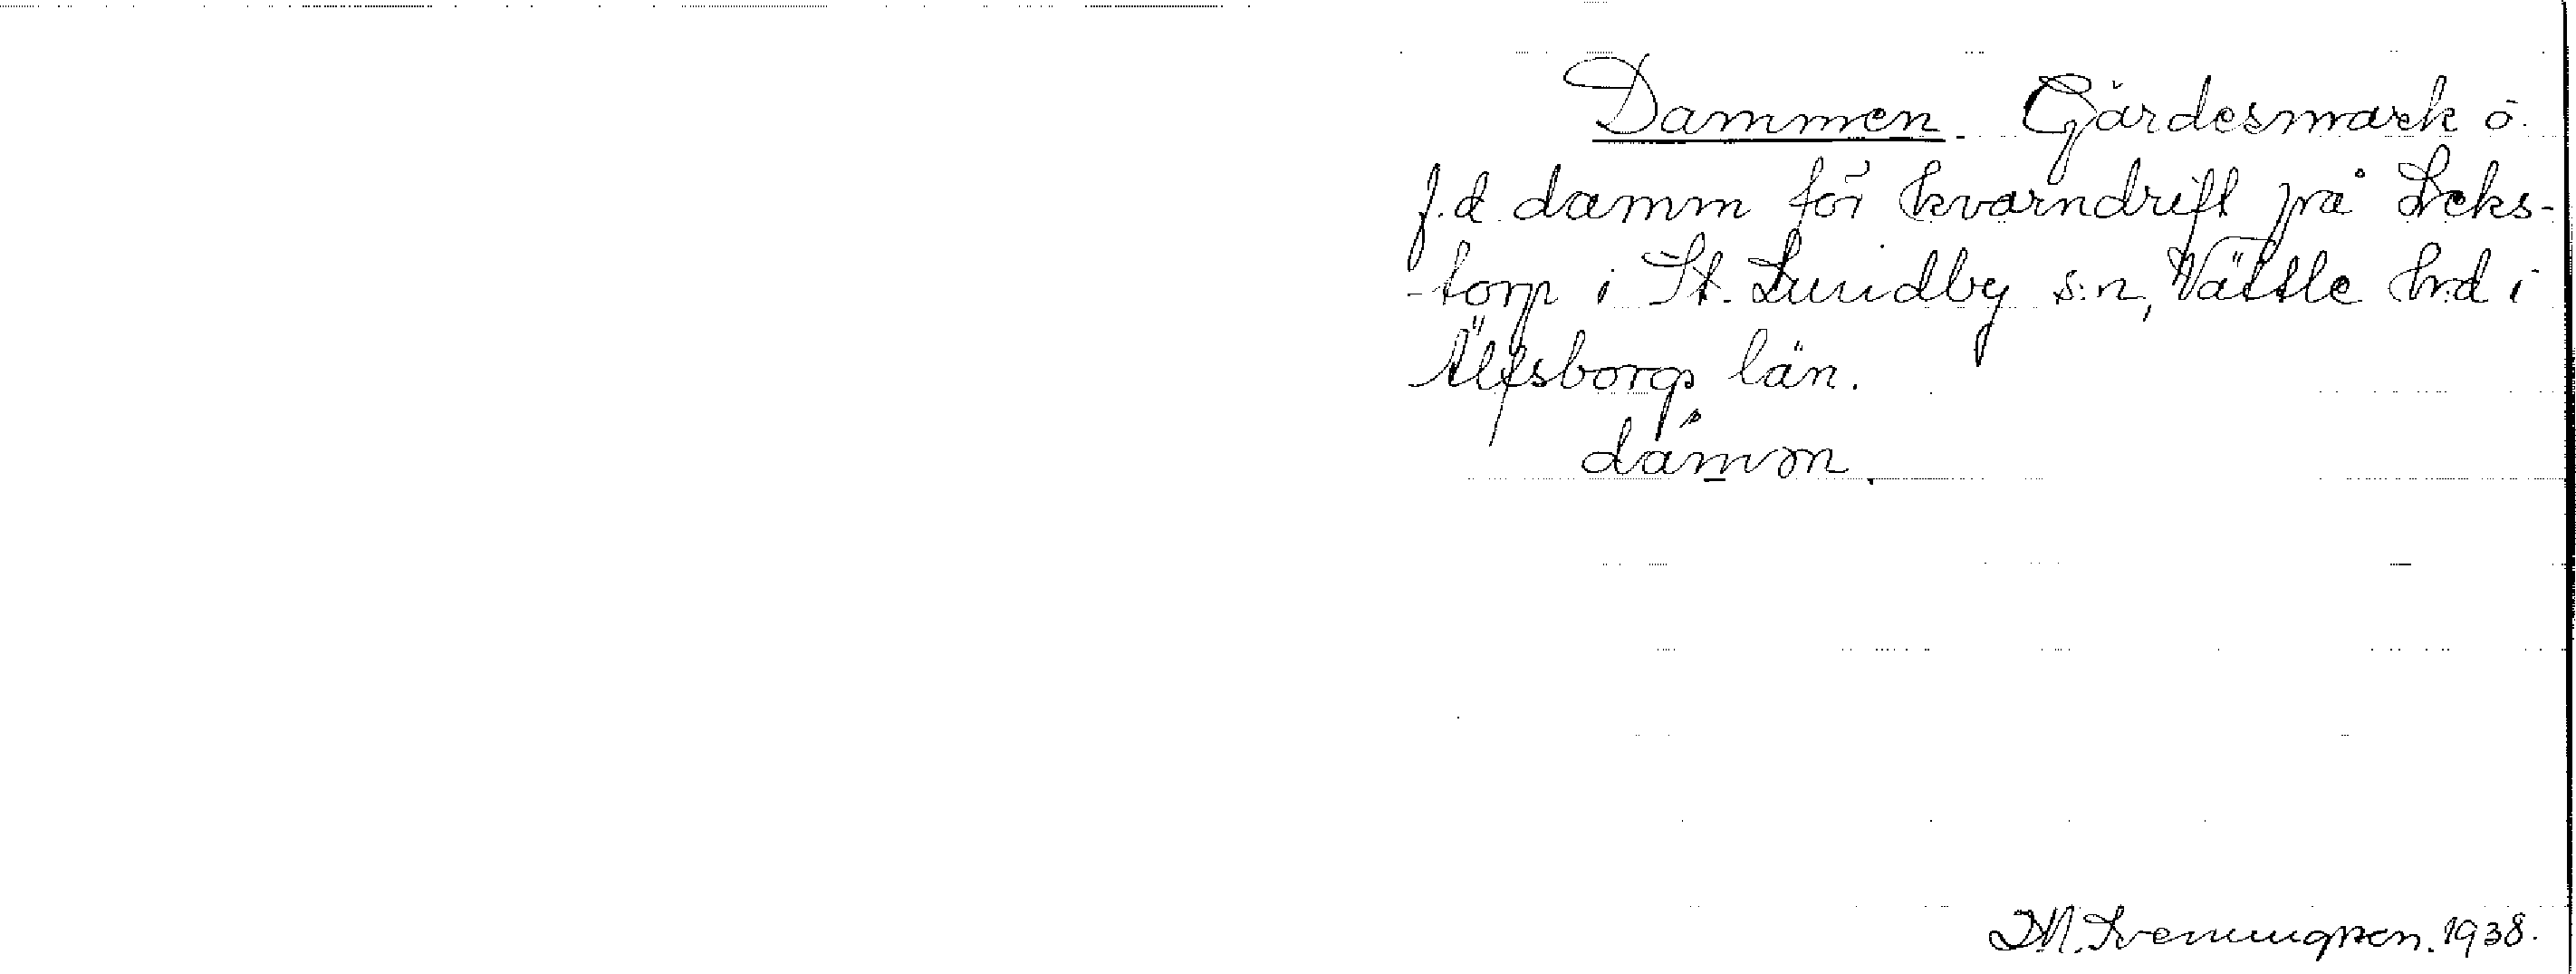 Dammen. Gärdesmark o.
f.d. damm för kvarndrift på Leks-
-torp i St. Lundby s:n, Vättle hrd i
Älfsborgs län.
dámm.
Svenungson. 1938.